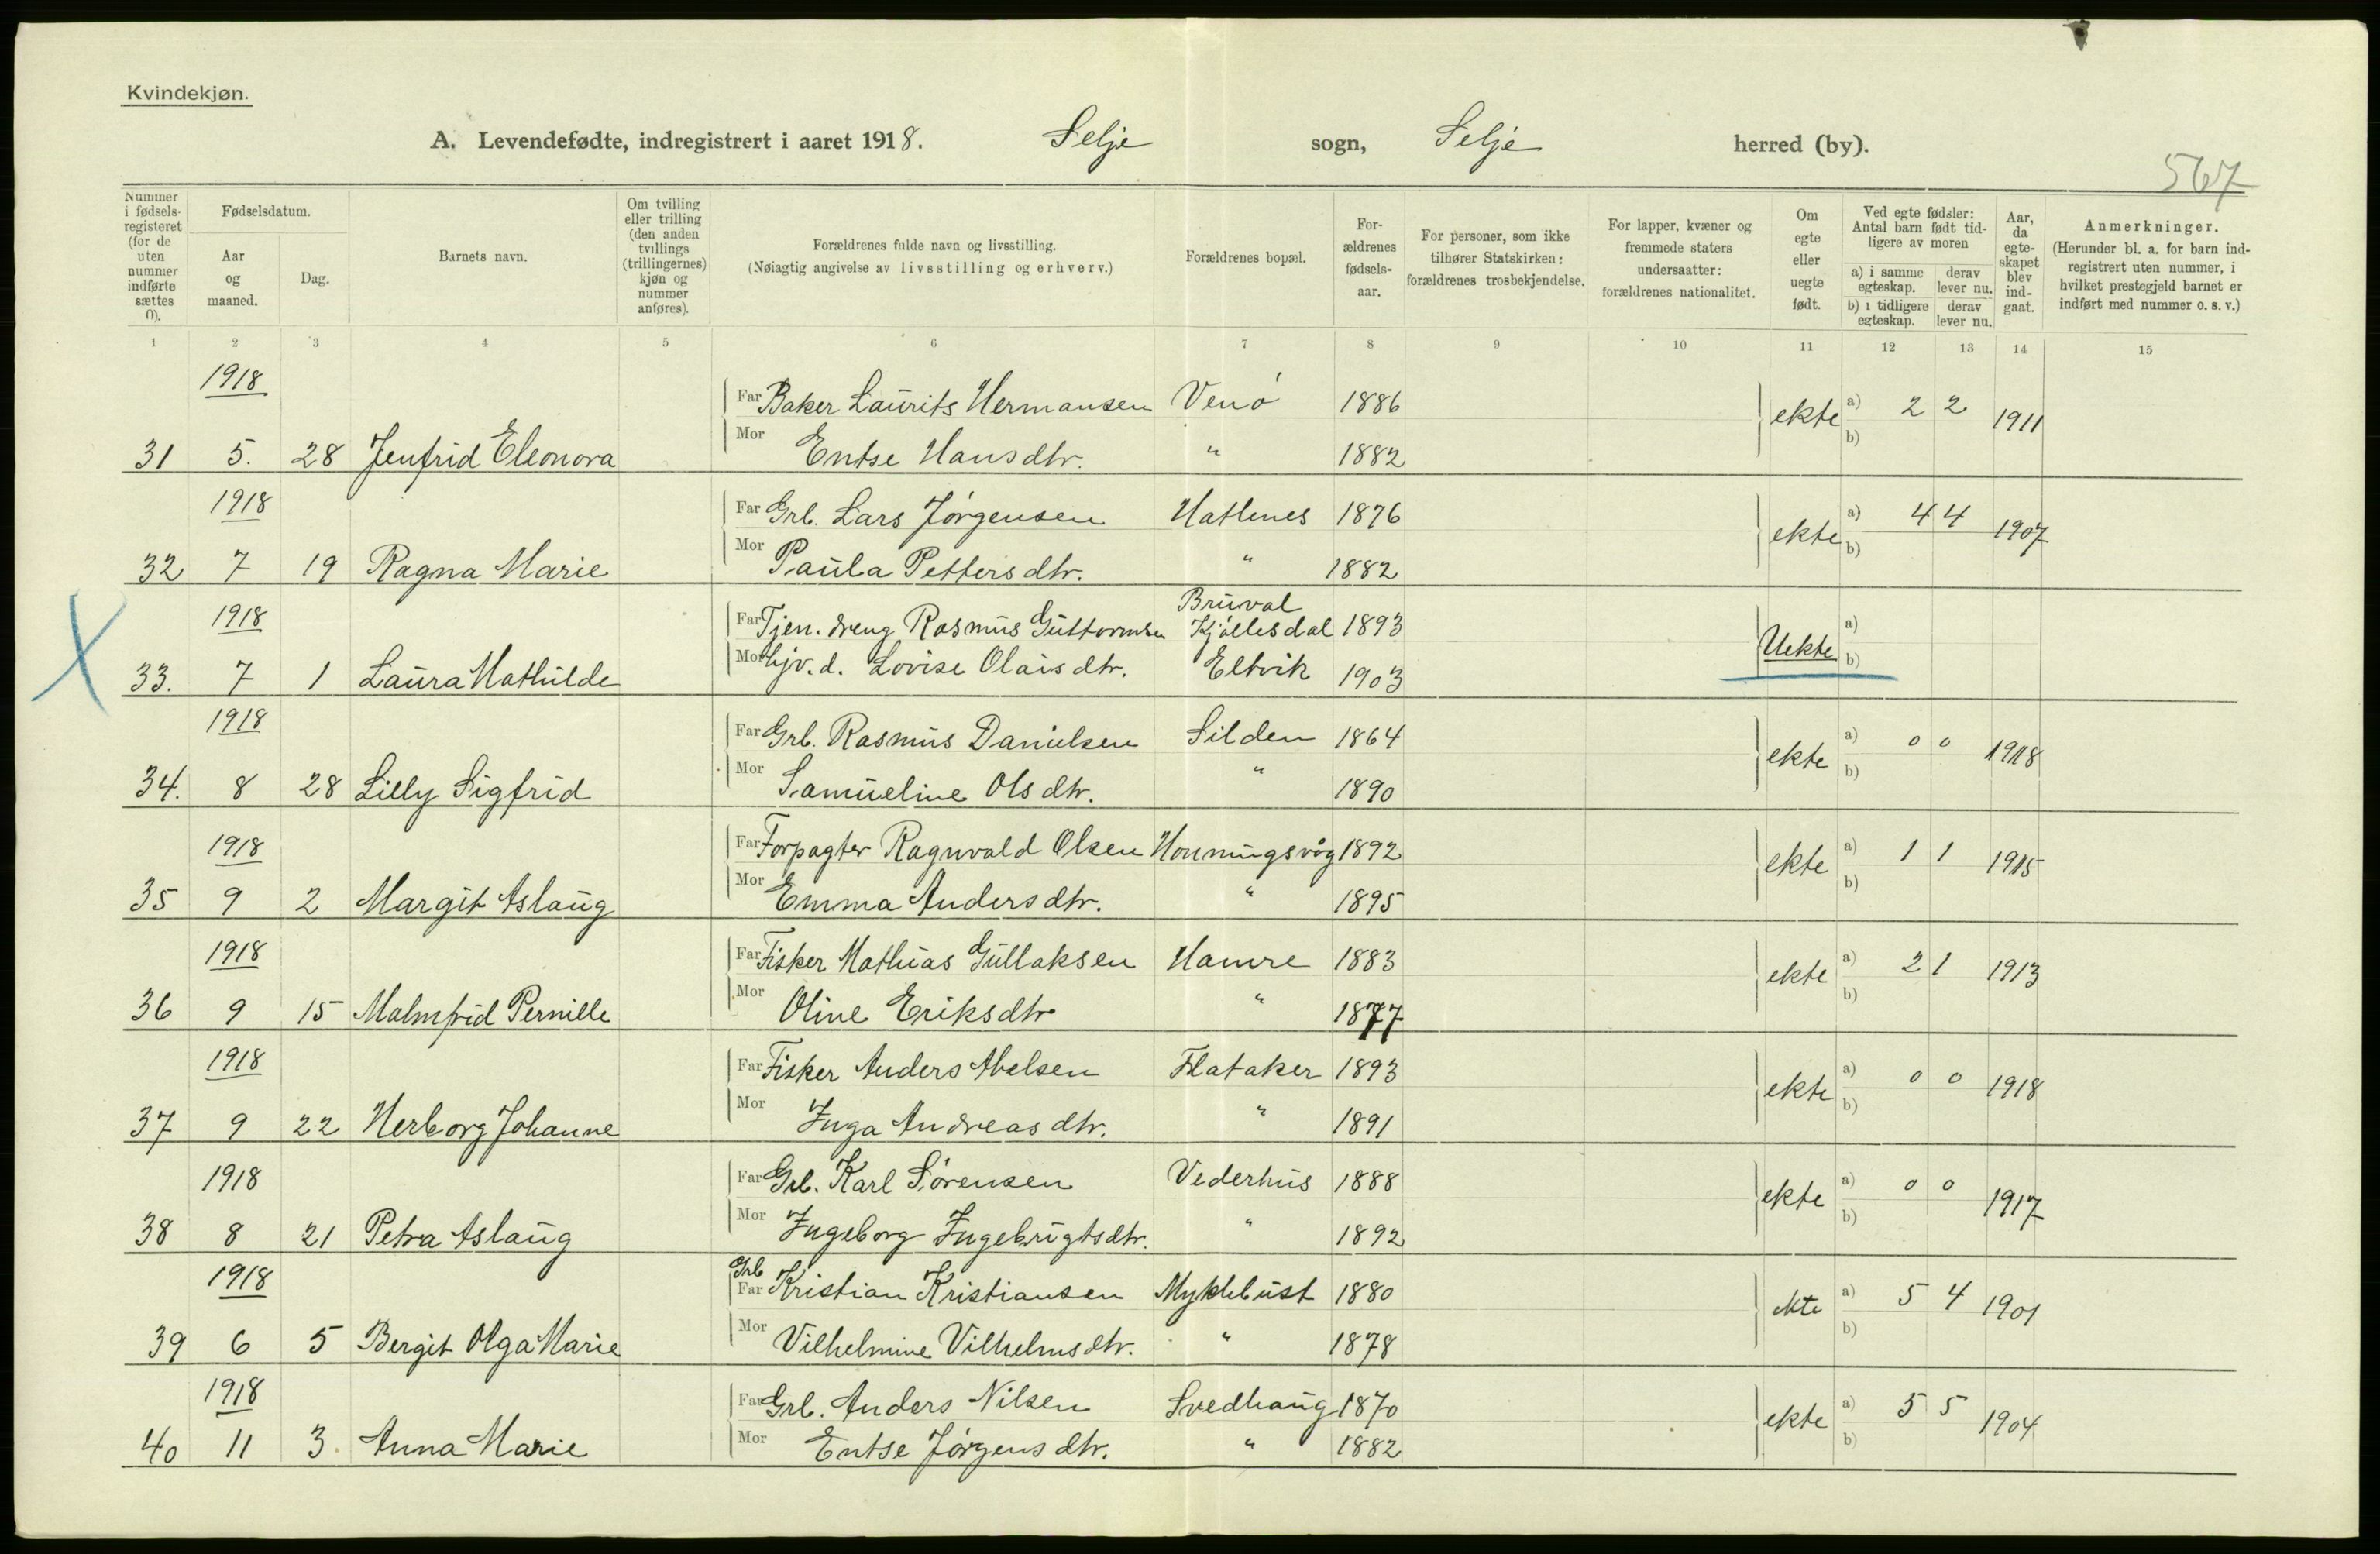 Kvindekjøn.
A. Levendefødte, indregistrert i aaret 1918. Selje sogn, Selje herred (by).
567
Nummer i fødsels-registeret (for de uten nummer indførte sættes 0).
Fødselsdatum.
Aar og maaned.
Dag.
Barnets navn.
Om tvilling eller trilling (den anden tvillings (trillingernes) kjøn og nummer anføres).
Forældrenes fulde navn og livsstilling.
(Nøiagtig angivelse av livsstilling og erhverv.)
Forældrenes bopæl.
For-ældrenes fødsels-aar.
For personer, som ikke tilhører Statskirken: forældrenes trosbekjendelse.
For lapper, kvæner og fremmede staters undersaatter: forældrenes nationalitet.
Om egte eller uegte født.
Ved egte fødsler: Antal barn født tid-ligere av moren
a) i samme egteskap. derav lever nu.
b) i tidligere egteskap. derav lever nu.
Aar, da egte-skapet blev ind-gaat.
Anmerkninger.
(Herunder bl. a. for barn ind-registrert uten nummer, i hvilket prestegjeld barnet er indført med nummer o. s. v.)
1 2 3 4 5 6 7 8 9 10 11 12 13 14 15
1918 Far Baker Laurits Hermansen Venö 1886 ekte a) 2 2 1911
31 5. 28 Jenfrid Eleonora Mor Entse Hansdtr. " 1882 b)
1918 Far Grb. Lars Jörgensen Hatlenes 1876 ekte a) 4 4 1907
32 7 19 Ragna Marie Mor Paula Pettersdtr. " 1882 b)
1918 Far Tjen. dreng Rasmus Guttormsen Bruval Kjöllesdal 1893 Uekte a)
33. 7 1 Laura Mathilde Mor hjv. d. Lovise Olaisdtr. Eltvik 1903 b)
1918 Far Grb. Rasmus Danielsen Silden 1864 ekte a) 0 0 1918
34. 8 28 Lilly Sigfrid Mor Samueline Olsdtr. " 1890 b)
1918 Far Forpagter Ragnvald Olsen Honningsvåg 1892 ekte a) 1 1 1915
35 9 2 Margit Aslaug Mor Emma Andersdtr. " 1895 b)
1918 Far Fisker Mathias Gullaksen Hamre 1883 ekte a) 2 1 1913
36 9 15 Malmfrid Pernille Mor Oline Eriksdtr " 1877 b)
1918 Far Fisker Anders Abelsen Flataker 1893 ekte a) 0 0 1918
37 9 22 Herborg Johanne Mor Inga Andreasdtr. " 1891 b)
1918 Far Grb. Karl Sörensen Vederhus 1888 ekte a) 0 0 1917
38 8 21 Petra Aslaug Mor Ingeborg Ingebrigtsdtr. " 1892 b)
1918 Grb Far Kristian Kristiansen Myklebust 1880 ekte a) 5 4 1901
39 6 5 Bergit Olga Marie Mor Vilhelmine Vilhelmsdtr. " 1878 b)
1918 Far Grb. Anders Nilsen Svedhaug 1870 ekte a) 5 5 1904
40 11 3. Anna Marie Mor Entse Jörgensdtr. " 1882 b)